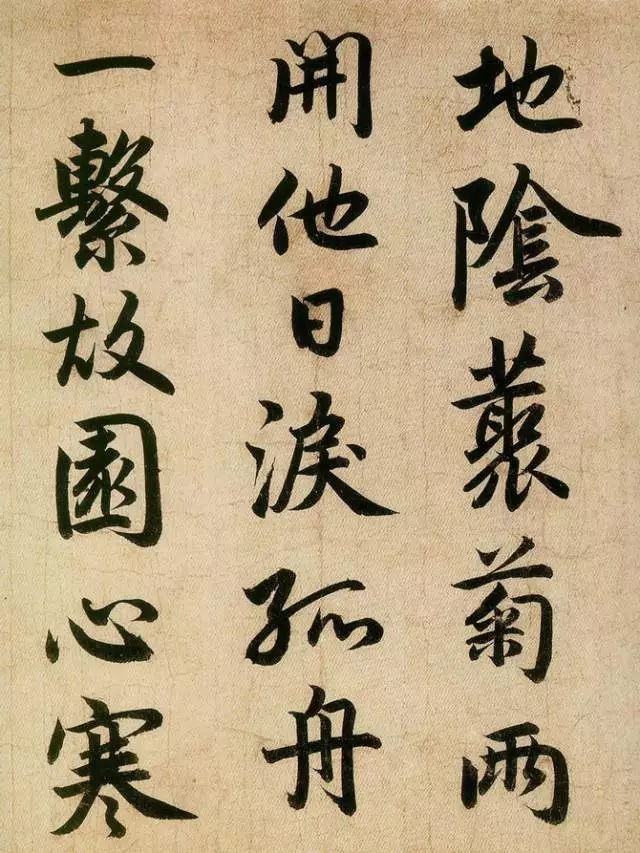 地陰藂菊兩
開他日淚孤舟
一繫故園心寒